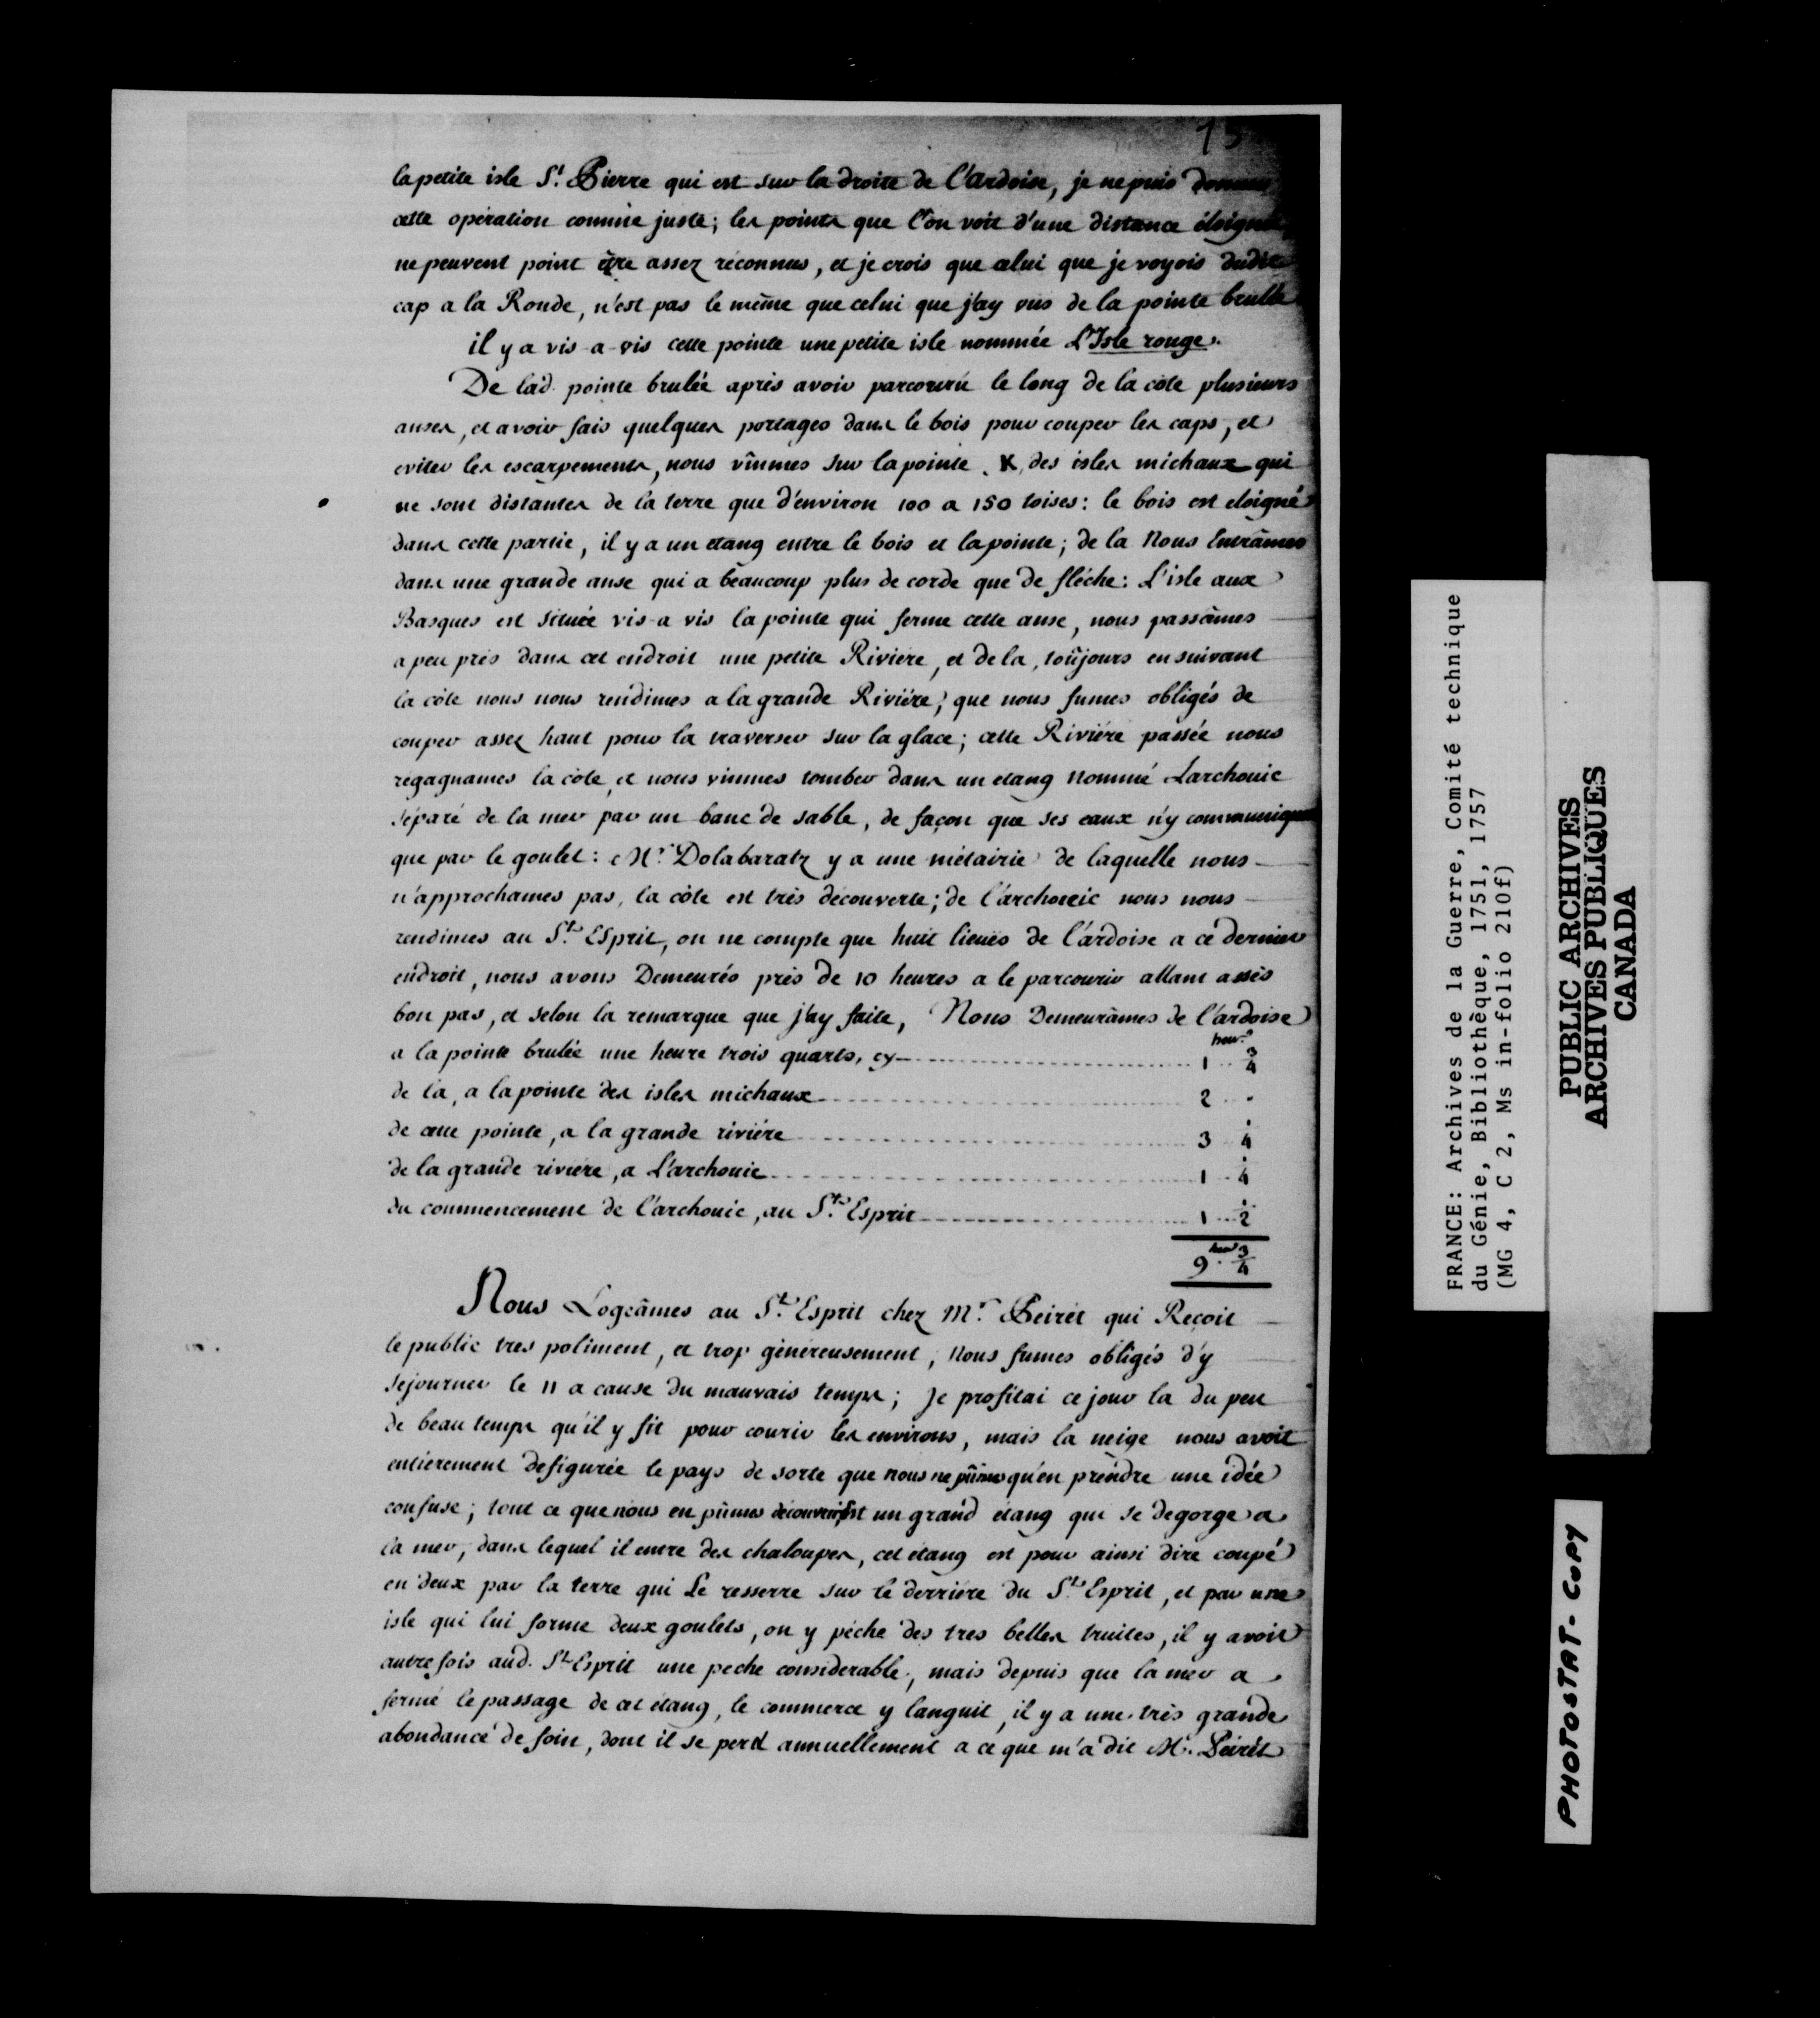 la petite isle St. Pierre qui est sur la droite de l'ardoise, je ne puis
cette opération comme juste; les points que l'on voit d'une distance
ne peuvent point être assez réconnus, et je crois que celui que je voyois dudit
cap a la Ronde, n'est pas le même que celui que j'ay vus de la pointe brulée
il y a vis-a-vis cette pointe une petite isle nommée L'Isle rouge.
De lad. pointe brulée après avoir parcouru le long de la côte plusieurs
anses, et avoir fais quelques portages dans le bois pour couper les caps, et
eviter les escarpements, nous vînmes sur la pointe K des isles michaux qui
ne sont distantes de la terre que d'environ 100 a 150 toises: le bois est eloigné
dans cette partie, il y a un etang entre le bois et la pointe; de la Nous Entrâmes
dans une grande anse qui a beaucoup plus de corde que de fléche: L'isle aux
Basques est située vis-a vis la pointe qui ferme cette anse, nous passâmes
a peu près dans cet endroit une petite Riviére, et de la, toûjours en suivant
la côte nous nous rendimes a la grande Riviére, que nous fumes obligés de
couper assez haut pour la traverser sur la glace; cette Riviére passée nous
regagnames la côte, et nous vinmes tomber dans un etang Nommé Larchouic
séparé de la mer par un banc de sable, de façon que ses eaux n'y communiquent
que par le goulet: Mr. Dolabaratz y a une métairie de laquelle nous
n'approchames pas, la côte est très découverte; de l'archoüic nous nous
rendimes au St. Esprit, on ne compte que huit lieuës de l'ardoise a ce dernier
endroit, nous avons Demeurés près de 10 heures a le parcourir allant assés
bon pas, et selon la remarque que j'ay faite, Nous Demeurâmes de l'ardoise
heur.
a la pointe brulée une heure trois quarts, cy 1 3/4
de la, a la pointe des isles michaux 2 "
de cette pointe, a la grande riviére 3 1/4
de la grande riviére, a L'archouic 1 1/4
du commencement de l'archouic, au St. Esprit 1 1/2
9 heur 3/4
Nous Logeâmes au St. Esprit chez Mr. Peirét qui Reçoit
le public tres poliment, et trop généreusement, Nous fumes obligés d'y
séjourner le 11 a cause du mauvais temps; Je profitai ce jour la du peu
de beau temps qu'il y fit pour courir les environs, mais la neige nous avoit
entierement defigurée le pays de sorte que nous ne pûmes qu'en prendre une idée
confuse; tout ce que nous en pûmes découvrir fut un grand étang qui se degorge a
la mer, dans lequel il entre des chaloupes, cet étang est pour ainsi dire coupé
en deux par la terre qui Le resserre sur le derriére du St. Esprit, et par une
isle qui lui forme deux goulets, on y péche des tres belles truites, il y avoit
autre fois aud. St. Esprit une peche considerable, mais depuis que la mer a
fermé le passage de cet étang, le commerce y languit, il y a une très grande
abondance de foin, dont il se perd annuellement a ce que m'a dit Mr. Peirét
FRANCE: Archives de la Guerre, Comité technique
du Génie, Bibliothèque, 1751, 1757
(MG 4, C 2, Ms in-folio 210f)
PUBLIC ARCHIVES
ARCHIVES PUBLIQUES
CANADA
PHOTOSTAT-COPY